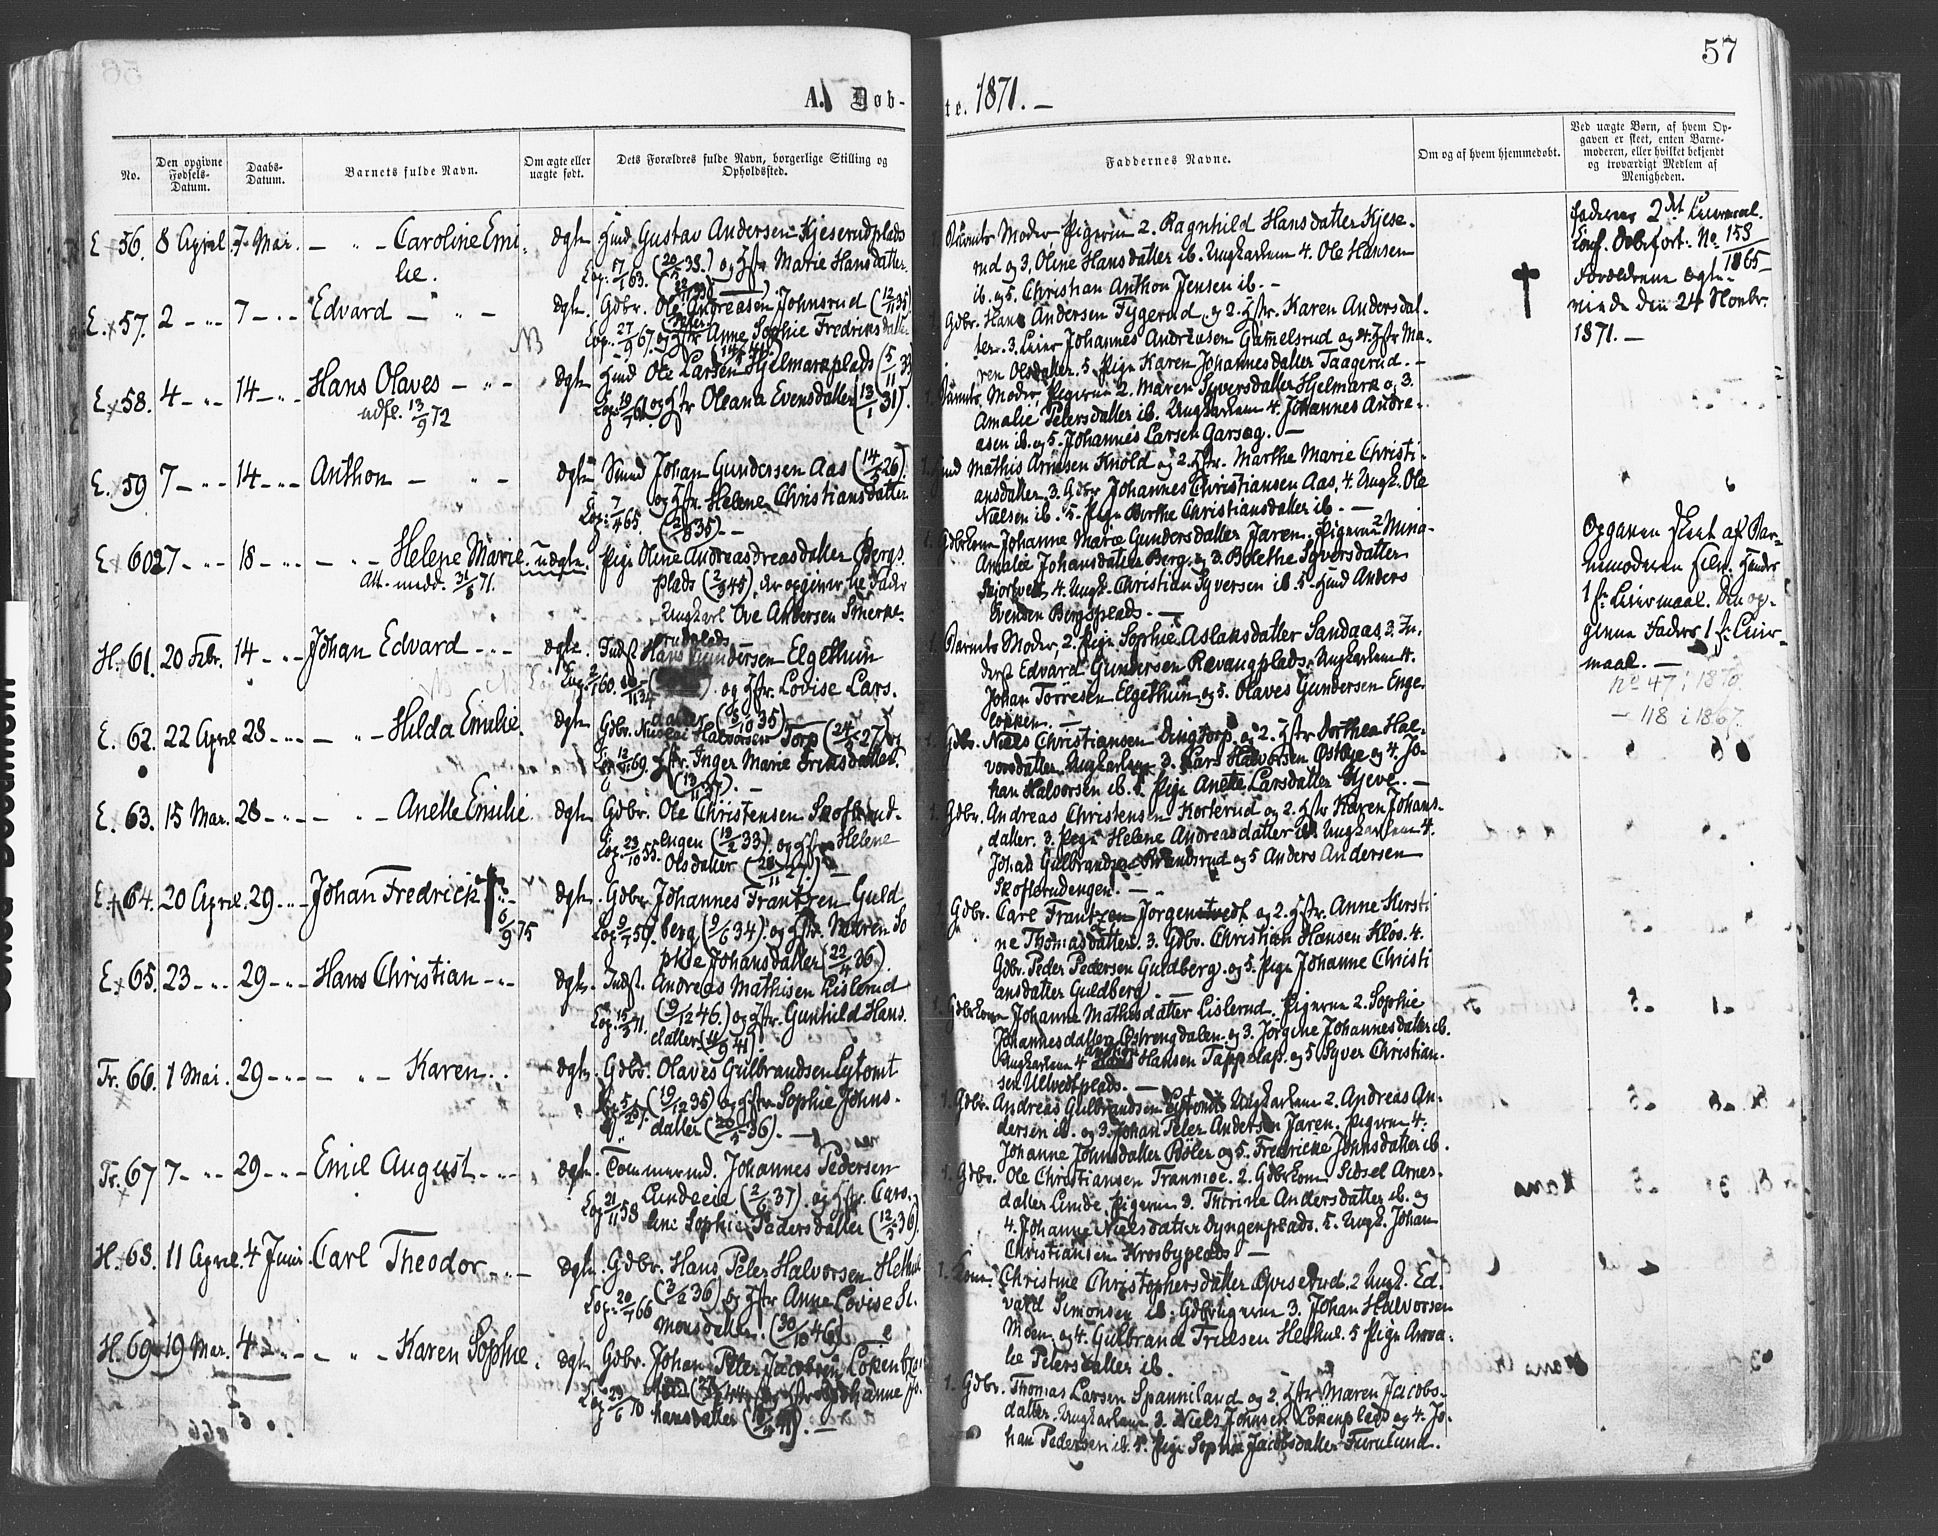 57
A. Døb-
te. 1871. —
No.
Den opgivne Fødsels-Datum.
Daabs-Datum.
Barnets fulde Navn.
Om ægte eller uægte født.
Dets Forældres fulde Navn, borgerlige Stilling og Opholdssted.
Faddernes Navne.
Om og af hvem hjemmedøbt.
Ved uægte Børn, af hvem Opgaven er skeet, enten Barnemoderen, eller hvilket bekjendt og troværdigt Medlem af Menigheden.
E 56. 8 April 7. Mai. — " — Caroline Emi-
lie.
ægte Husmd Gustav Andersen Kjeserudplads
og Hstr Marie Hansdatter.
Barnets Moder Pigerne 2. Ragnhild Hansdatter Kjese-
rud og 3. Oline Hansdatter ib. Ungkarlene 4. Ole Hansen
ib. og 5. Christian Anthon Jensen ib. —
E. 57. 2 — " — 7 — " — Edvard — " —
ægte Gdbr. Ole Andreasen Johnsrud (12/11 35)
Cop. 27/9 67. og Hstr Anne Sophie Fredriksdatter
1 Gdbr. Hans Andersen Tygerud, og 2. Hstr. Karen Andersdat-
ter. 3. Leier Johannes Andreasen Gamelsrud og 4. Hstr Ma-
ren Olsdatter. 5. Pige Karen Johannesdatter Taagerud. —
1871. —
E 58. 4 — " — 14 — " — Hans Olaves — " —
udfl. 13/9 72
ægte Husmd Ole Larsen Hjelmarkplads (5/11 33)
og Hstr Oleana Evensdatter (13/1 31).
Barnets Moder Pigerne 2. Maren Syversdatter Hjelmark og 3.
Amalie Petersdatter ib. Ungkarlene 4. Johannes Andre-
asen ib. og 5. Johannes Larsen Garseg. —
E. 59 7 — " — 14 — " — Anthon — " —
ægte Smed Johan Gundersen Aas (14/5 26)
Cop. 7/4 65. og Hstr. Helene Christiansdatter
1. Husmd Mathis Arnesen Knold og 2. Hstr. Marthe Marie Christi-
ansdatter 3. Gdbr Johannes Christiansen Aas, 4. Ungk. Ole
Nielsen ib. 5. Pige Berthe Christiansdatter ib. —
E 60 27 — " — 18 — " — — " — Helene Marie. uægte.
Att. medd. 31/5 71.
Pige Oline Andreasdatter Bergs-
plads (2/3 45), der opgiver til Fader
Ungkarl Ove Andersen
1. Gdbrkone Johanne Marie Gundersdatter Jaren. Pigerne 2 Mina-
Amalie Johansdatter Berg og 3. Bolethe Syversdatter
4. Ungk. Christian Syversen ib. 5. Husmd Anders
Evensen Bergsplads. —
Opgaven skeet af Bar-
nemoderen selv. Hendes
1ste Leiermaal. Den op-
givne Faders 1ste Leier-
maal. —
No 47 i 1870
— 118 i 1867.
H. 61. 20 Febr. 14 — " — Johan Edvard — " —
ægte. Inds Hans Gundersen Elgethun
og Hstr. Lovise Lars-
datter (3/10 35)
1. Barnets Moder, 2. Pige Sophie Aslaksdatter Sandaas 3. In-
derst Edvard Gundersen Revaugplads, Ungkarlene 4.
Johan Torresen Elgethun og 5. Olaves Gundersen Enge-
løkken. —
E. 62. 22 April 28 — " — — " — Hilda Emilie.
ægte Gdbr. Nicolai Halvorsen Torp (24/2 27) og
Hstr. Inger Marie Eriksdatter.
1. Gdbr. Niels Christiansen Dingtorp og 2. Hstr Dorthea Hal-
vorsdatter. Ungkarlene 3. Lars Halvorsen Østbye og 4. Jo-
han Halvorsen ib. 5. Pige Anette Larsdatter Gjeve. —
E. 63. 15 Mar. 28 — " — — " — Anette Emilie.
ægte Gdbr. Ole Christensen Skofterud-
engen (13/2 33) og Hstr Helene
Olsdatter (28/11 27.) —
Cop. 23/10 55.
1. Gdbr. Andreas Christensen Korterud og 2. Hstr Karen Johans-
datter. 3. Pige Helene Andreasdatter ib. Ungkarlene 4.
Johan Gulbrandsen Strandsrud og 5 Anders Andersen
Skofterudengen. — .
E. 64. 20 April. 29 — " — Johan Fredrick †
6/9 75
ægte Gdbr. Johannes Frantzen Guld-
berg (9/6 34). og Hstr. Maren So-
phie Johansdatter (22/4 36).
Gdbr. Carl Frantzen Jorgenstvedt og 2. Hstr. Anne Kersti-
ne Thomasdatter. 3. Gdbr. Christian Hansen Kløs. 4.
Gdbr. Peder Pedersen Guldberg. og 5. Pige Johanne Christi-
ansdatter Guldberg. —
E. 65. 23 — " — 29 — " — Hans Christian — " —
ægte. Indst. Andreas Mathisen Lislerud
(9/12 46.) og Hstr. Gunhild Hans-
datter (11/9 41).
1. Gdbrkone Johanne Mathisdatter Lislerud. Pigerne 2. Sophie
Johannesdatter Østrengdalen og 3. Jorgine Johannesdatter ib.
Ungkarlene 4 Hansen Tappelap. og 5 Syver Christian-
sen Ulvedtplads. —
Tr. 66. 1 Mai. 29 — " — — " — Karen . .
ægte. Gdbr. Olaves Gulbrandsen Lytomt
(19/12 35) og Hstr Sophie Johns-
datter (20/5 36). —
1. Gdbr. Andreas Gulbrandsen Lytomt. Ungkarlene 2. Andreas An-
dersen ib. og 3. Johan Peter Andersen Jaren. Pigerne 4.
Johanne Johnsdatter Bøler og 5. Fredrikke Johnsdatter ib.
Tr. 67 7 — " — 29 — " — Emil August — " —
ægte. Tommermd. Johannes Pedersen
Lundeeie (2/6 37). og Hstr Caro-
line Sophie Pedersdatter (12/5 36).
Cop. 21/11 58
1. Gdbr. Ole Christiansen Tranmoe. 2. Gdbrkone Sidsel Arnes-
datter Lunde. Pigerne 3. Thorine Andersdatter ib. og
4. Johanne Nielsdatter Dyngenplads. 5. Ungk. Johan
Christiansen Krosbyplads. —
H. 68. 11 April. 4 Juni. Carl Theodor — " —
ægte. Gdbr. Hans Peter Halvorsen Hethul
(3/2 36) og Hstr Anne Lovise Si-
monsdatter. (30/10 46)
1. Kone Christine Christophersdatter Qviserud. 2 Ungk. Ed-
vard Simonsen ib. 3. Johan Halvorsen
Moen og 4. Gulbrand Friesen Hethul. 5 Pige Ama-
lie Petersdatter ib.
H. 69 19 Mar. 4 — " — — " — Karen Sophie.
ægte Gdbr. Johan Peter Jacobsen
og Hstr Johanne Jo-
hansdatter
Cop. 23/6 70
1. Gdbr. Thomas Larsen Spanniland og 2. Hstr Maren Jacobs-
datter. Ungkarlene 3. Niels Johnsen Lökenplads og 4. Jo-
han Pedersen ib. 5. Pige Sophie Jacobsdatter Furulund.